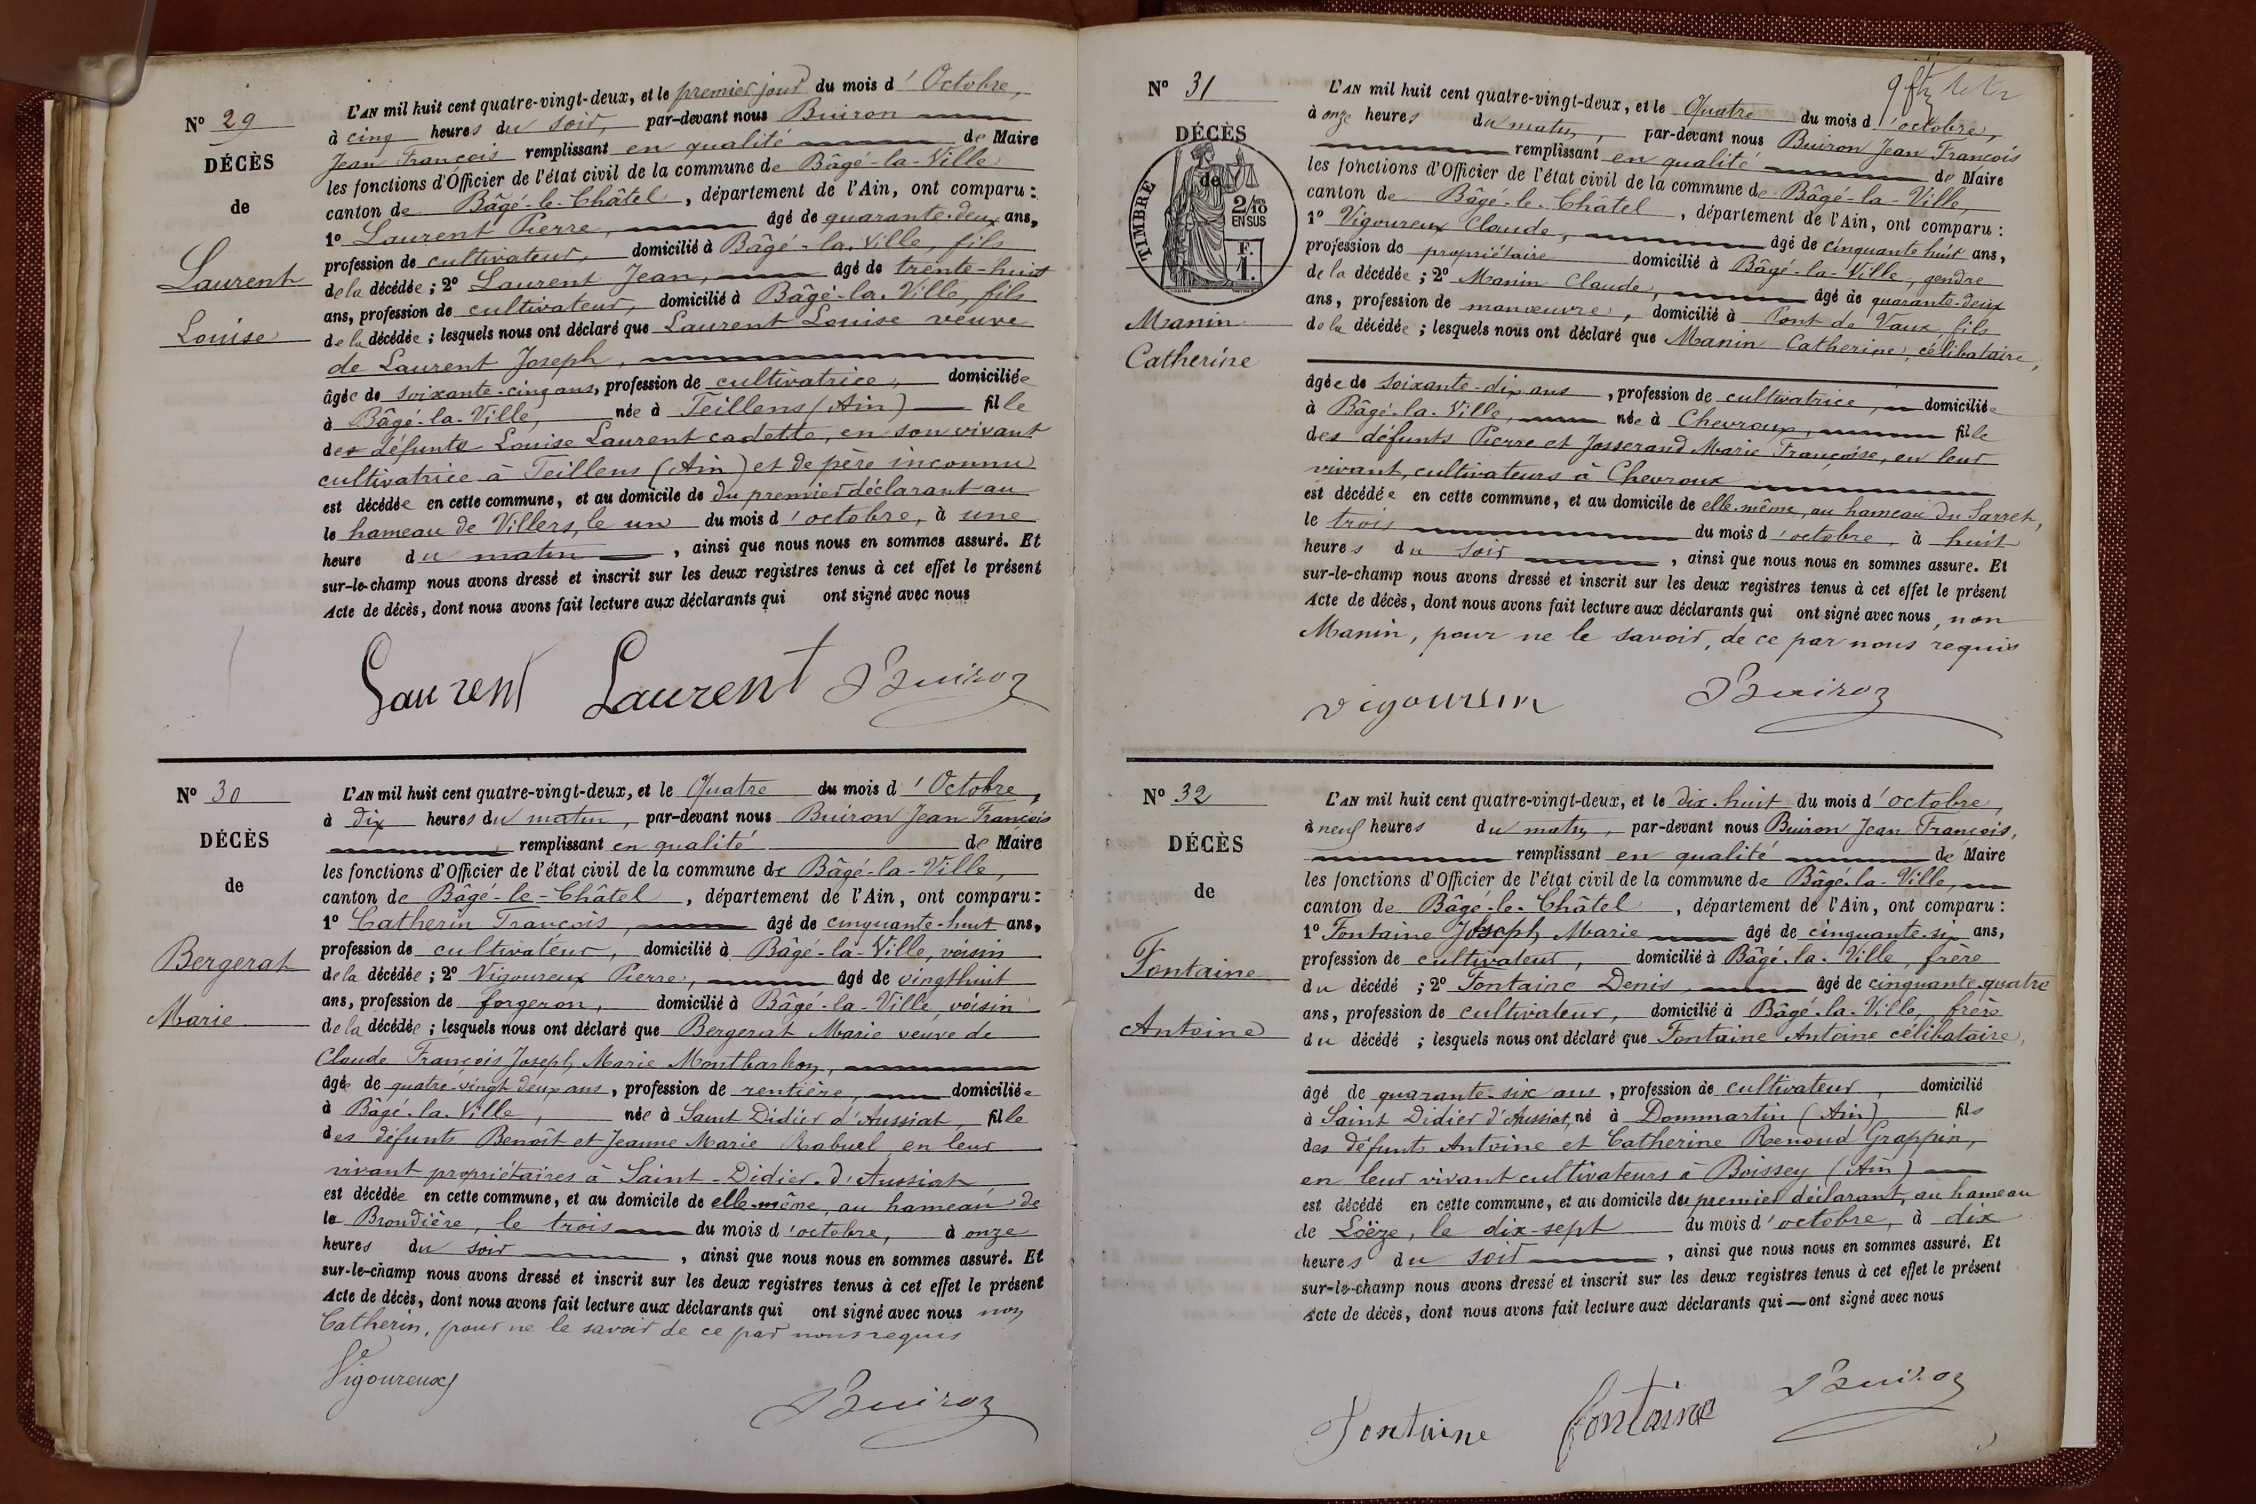 N° 29
DÉCÈS
de
Laurent
Louise
L'AN mil huit cent quatre-vingt-deux, et le premier jour du mois d'Octobre,
à cinq heures du soir, par-devant nous Buiron
Jean François remplissant en qualité de Maire
les fonctions d'Officier de l'état civil de la commune de Bâgé-la-Ville
canton de Bâgé-le-Châtel, département de l'Ain, ont comparu :
1° Laurent Pierre, âgé de quarante-deux ans,
profession de cultivateur, domicilié à Bâgé-la-Ville, fils
de la décédée ; 2° Laurent Jean, âgé de trente-huit
ans, profession de cultivateur, domicilié à Bâgé-la-Ville, fils
de la décédée ; lesquels nous ont déclaré que Laurent Louise veuve
de Laurent Joseph,
âgée de soixante-cinq ans, profession de cultivatrice, domiciliée
à Bâgé-la-Ville, née à Teillens (Ain) fille
des défunts Louise Laurent cadette, en son vivant
cultivatrice à Teillens (Ain) et de père inconnu
est décédée en cette commune, et au domicile de du premier déclarant au
le hameau de Villers, le un du mois d'octobre, à une
heure du matin, ainsi que nous nous en sommes assuré. Et
sur-le-champ nous avons dressé et inscrit sur les deux registres tenus à cet effet le présent
Acte de décès, dont nous avons fait lecture aux déclarants qui ont signé avec nous
Laurent Laurent Buiron
N° 30
DÉCÈS
de
Bergerat
Marie
L'AN mil huit cent quatre-vingt-deux, et le Quatre du mois d'Octobre,
à dix heures du matin, par-devant nous Buiron Jean François
remplissant en qualité de Maire
les fonctions d'Officier de l'état civil de la commune de Bâgé-la-Ville,
canton de Bâgé-le-Châtel, département de l'Ain, ont comparu :
1° Catherin François, âgé de cinquante-huit ans,
profession de cultivateur, domicilié à Bâgé-la-Ville, voisin
de la décédée ; 2° Vigoureux Pierre, âgé de vingt huit
ans, profession de forgeron, domicilié à Bâgé-la-Ville, voisin
de la décédée ; lesquels nous ont déclaré que Bergerat Marie veuve de
Claude François Joseph Marie Montbarbon,
âgée de quatre-vingt deux ans, profession de rentière, domiciliée
à Bâgé-la-Ville, née à Saint Didier d'Aussiat, fille
des défunts Benoît et Jeanne Marie Rabuel en leur
vivant propriétaires à Saint-Didier-d'Aussiat
est décédée en cette commune, et au domicile de elle-même, au hameau de
le Brondière, le trois du mois d'octobre, à onze
heures du soir, ainsi que nous nous en sommes assuré. Et
sur-le-champ nous avons dressé et inscrit sur les deux registres tenus à cet effet le présent
Acte de décès, dont nous avons fait lecture aux déclarants qui ont signé avec nous non
Catherin, pour ne le savoir de ce par nous requis
Vigoureux
Buiron
N° 31
DÉCÈS
de
TIMBRE
2/10
EN SUS
F.
1.
Manin
Catherine
L'AN mil huit cent quatre-vingt-deux, et le Quatre du mois d'octobre,
à onze heures du matin, par-devant nous Buiron Jean François
remplissant en qualité de Maire
les fonctions d'Officier de l'état civil de la commune de Bâgé-la-Ville,
canton de Bâgé-le-Châtel, département de l'Ain, ont comparu :
1° Vigoureux Claude, âgé de cinquante huit ans,
profession de propriétaire domicilié à Bâgé-la-Ville, gendre
de la décédée ; 2° Manin Claude, âgé de quarante-deux
ans, profession de manœuvre, domicilié à Pont de Vaux fils
de la décédée ; lesquels nous ont déclaré que Manin Catherine, célibataire,
âgée de soixante-dix ans, profession de cultivatrice, domiciliée
à Bâgé-la-Ville, née à Chevroux, fille
des défunts Pierre et Josserand Marie Françoise, en leur
vivant, cultivateurs à Chevroux
est décédée en cette commune, et au domicile de elle-même, au hameau du Sarret,
le trois du mois d'octobre, à huit
heures du soir, ainsi que nous nous en sommes assuré. Et
sur-le-champ nous avons dressé et inscrit sur les deux registres tenus à cet effet le présent
Acte de décès, dont nous avons fait lecture aux déclarants qui ont signé avec nous, non
Manin, pour ne le savoir, de ce par nous requis
Vigoureux Buiron
N° 32
DÉCÈS
de
Fontaine
Antoine
L'AN mil huit cent quatre-vingt-deux, et le dix-huit du mois d'octobre,
à neuf heures du matin, par-devant nous Buiron Jean François,
remplissant en qualité de Maire
les fonctions d'Officier de l'état civil de la commune de Bâgé-la-Ville,
canton de Bâgé-le-Châtel, département de l'Ain, ont comparu :
1° Fontaine Joseph Marie âgé de cinquante-six ans,
profession de cultivateur, domicilié à Bâgé-la-Ville, frère
du décédé ; 2° Fontaine Denis, âgé de cinquante-quatre
ans, profession de cultivateur, domicilié à Bâgé-la-Ville, frère
du décédé ; lesquels nous ont déclaré que Fontaine Antoine célibataire,
âgé de quarante-six ans, profession de cultivateur, domicilié
à Saint Didier d'Aussiat, né à Dommartin (Ain) fils
des défunts Antoine et Catherine Renoud Grappin,
en leur vivant cultivateurs à Boissey (Ain)
est décédé en cette commune, et au domicile du premier déclarant, au hameau
de Loëze, le dix-sept du mois d'octobre, à dix
heures du soir, ainsi que nous nous en sommes assuré. Et
sur-le-champ nous avons dressé et inscrit sur les deux registres tenus à cet effet le présent
Acte de décès, dont nous avons fait lecture aux déclarants qui ont signé avec nous
Fontaine Fontaine Buiron